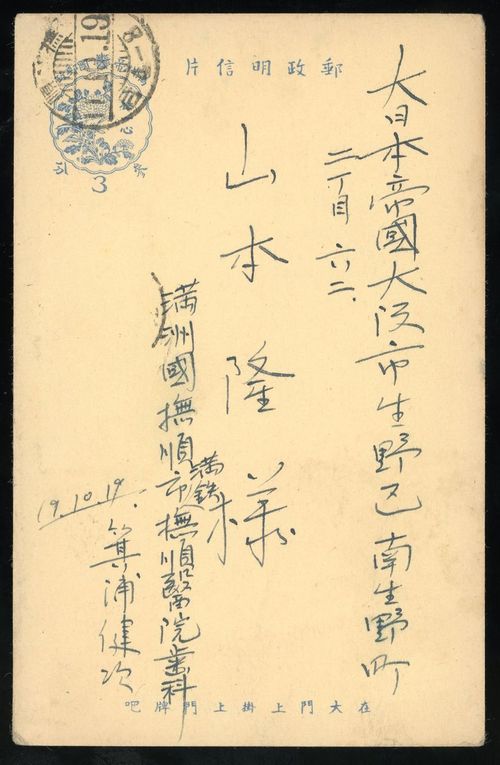 郵政明信片
大日本帝國大阪市生野区南生野町
二丁目六二、
山本隆様
満洲國撫順市満鉄撫順醫院歯科
19.10.19.
箕浦健次
3
19
8-
在大門上掛上門牌吧